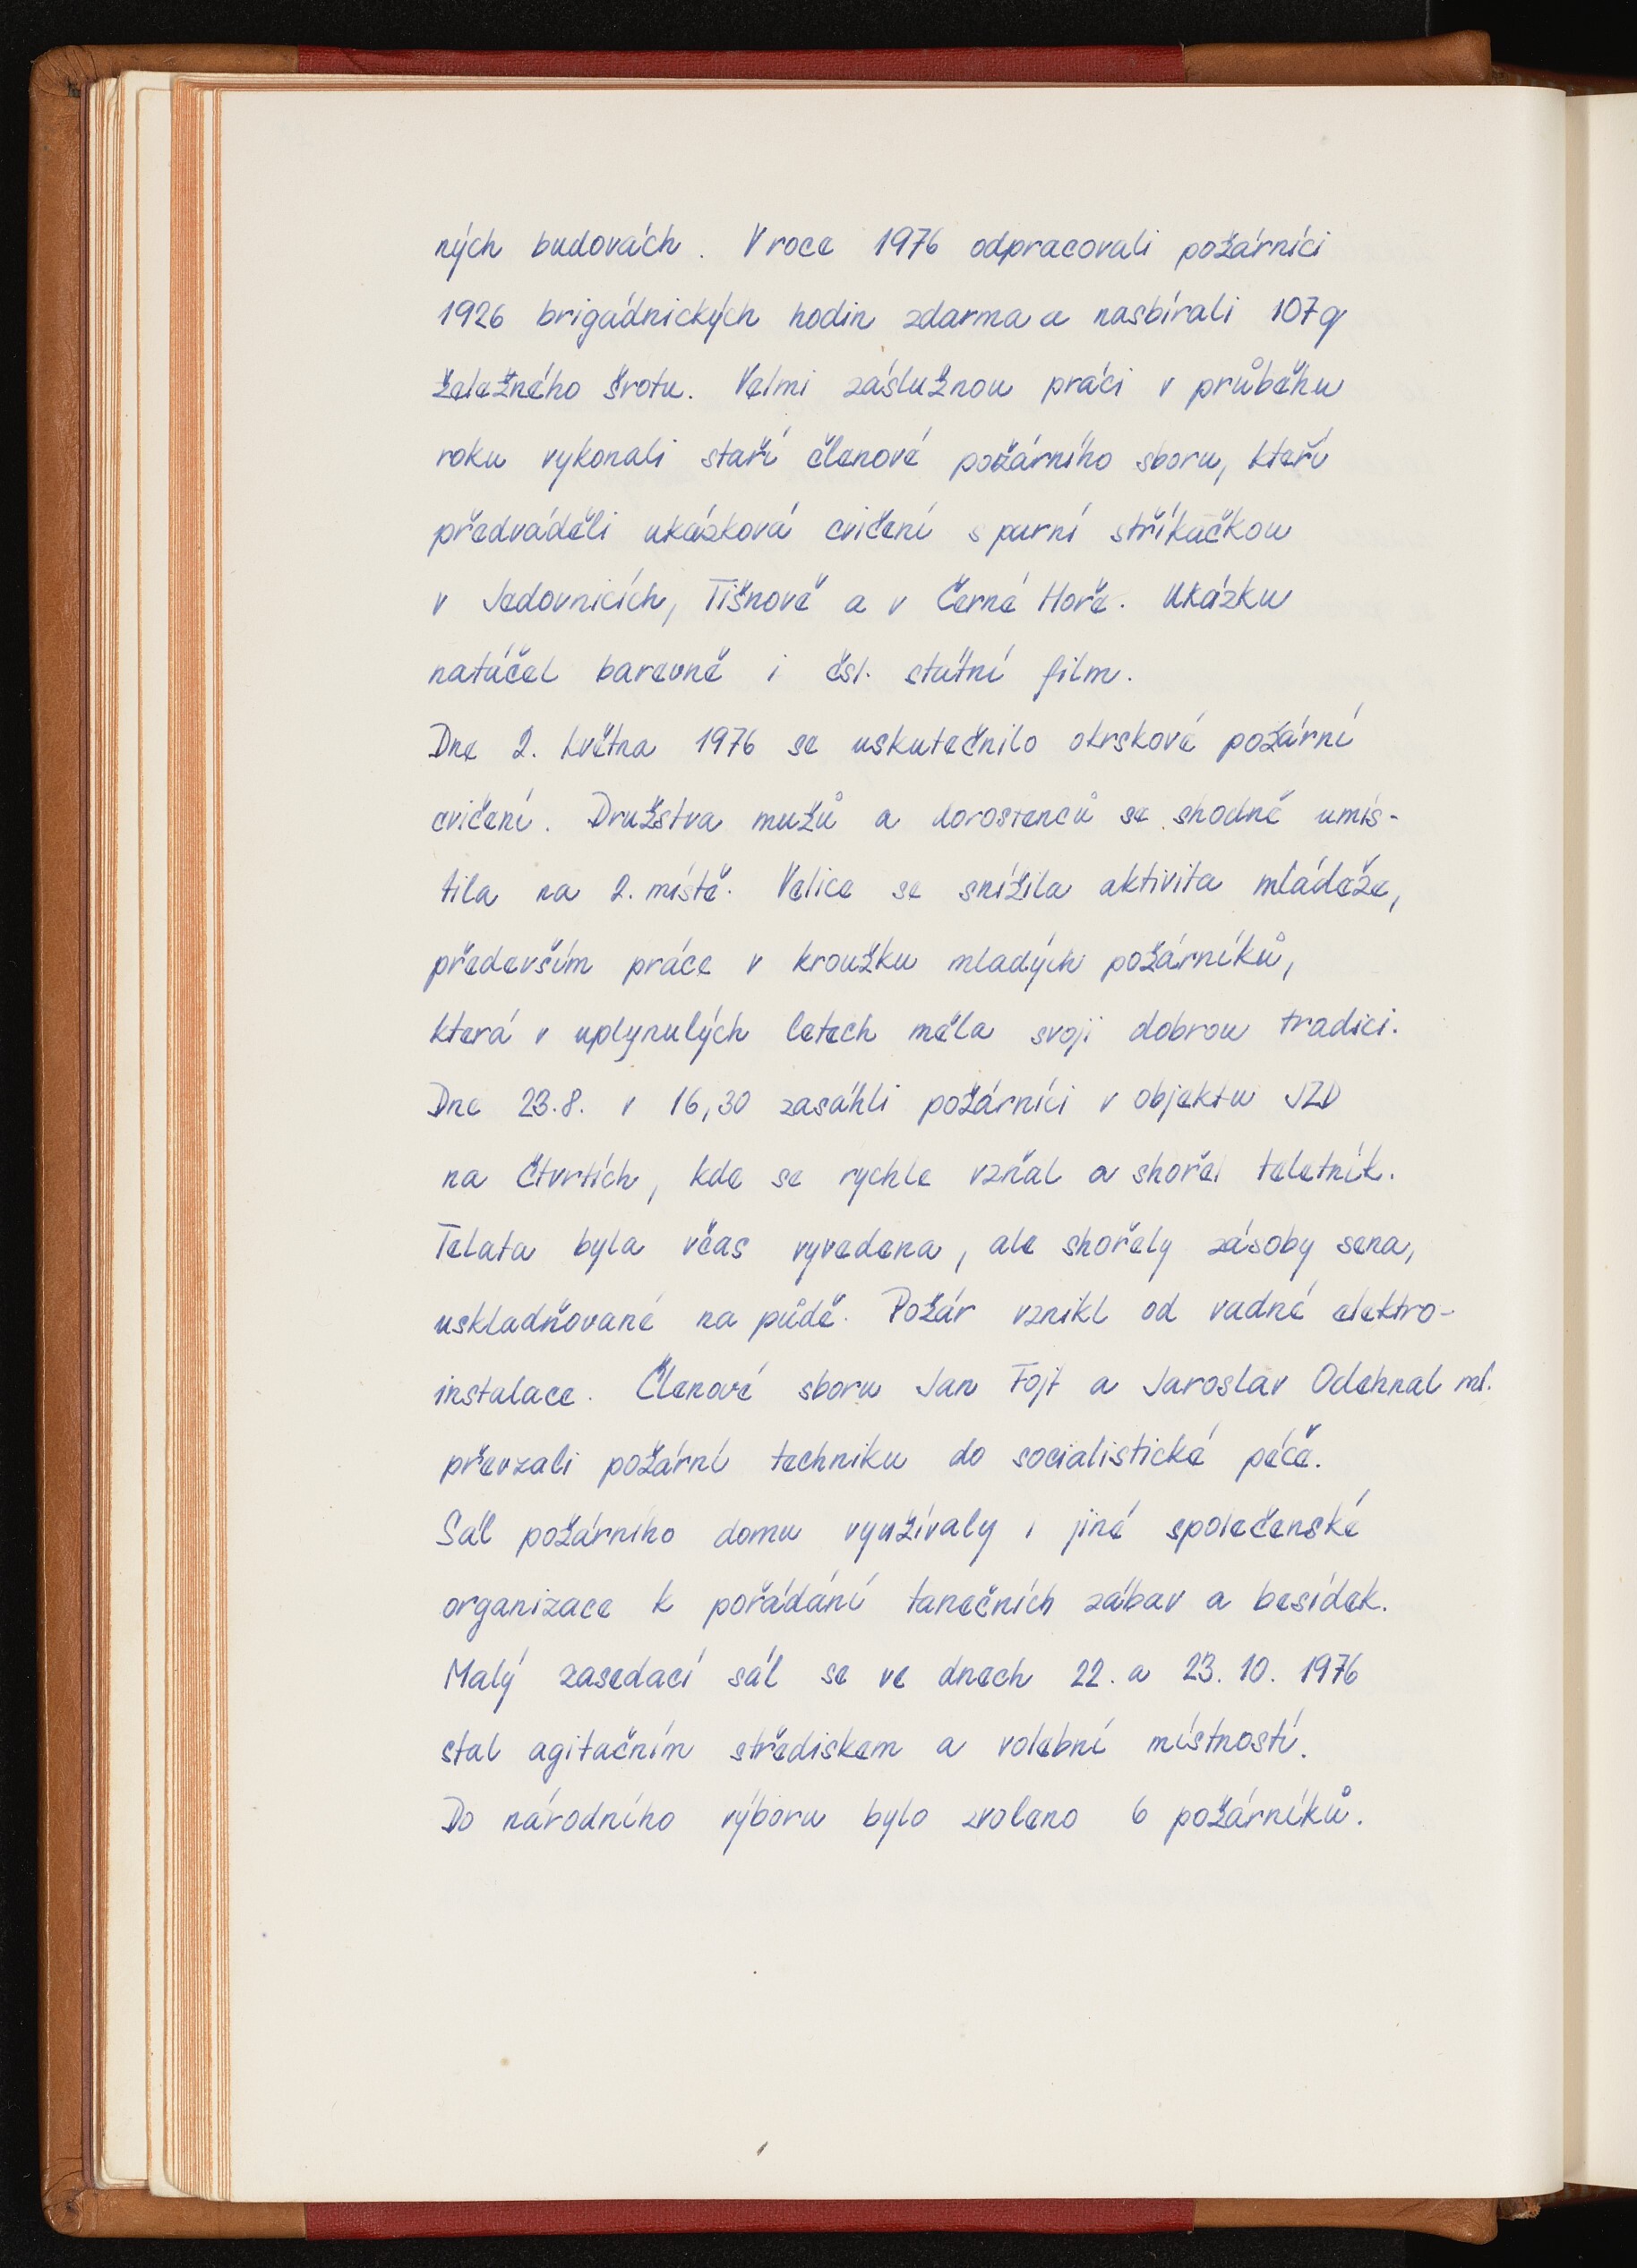 ných budovách. V roce 1976 odpracovali požárníci
1926 brigádnických hodin zdarma a nasbírali 107q
želežného šrotu. Velmi záslužnou práci v průběhu
roku vykonali staří členové požárního sboru, kteří
předváděli ukázková cvičení s parní stříkačkou
v Jedovnicích, Tišnově a v Černé Hoře. Ukázku
natáčel barevně i čsl. státní film.
Dne 2. května 1976 se uskutečnilo okrskové požární
cvičení. Družstva mužů a dorostenců se shodně umís-
tila na 2. místě. Velice se snížila aktivita mládeže,
především práce v kroužku mladých požárníků,
která v uplynulých letech měla svoji dobrou tradici.
Dne 23.8. v 16,30 zasáhli požárníci v objektu JZD
na Čtvrtích, kde se rychle vzňal a shořel teletník.
Telata byla včas vyvedena, ale shořely zásoby sena,
uskladňované na půdě. Požár vznikl od vadné elektro-
instalace. Členové sboru Jan Fojt a Jaroslav Odehnal ml.
převzali požární techniku do socialistické péče.
Sál požárního domu využívaly i jiné společenské
organizace k pořádání tanečních zábav a besídek.
Malý zasedací sál se ve dnech 22. a 23. 10. 1976
stal agitačním střediskem a volební místností.
Do národního výboru bylo zvoleno 6 požárníků.